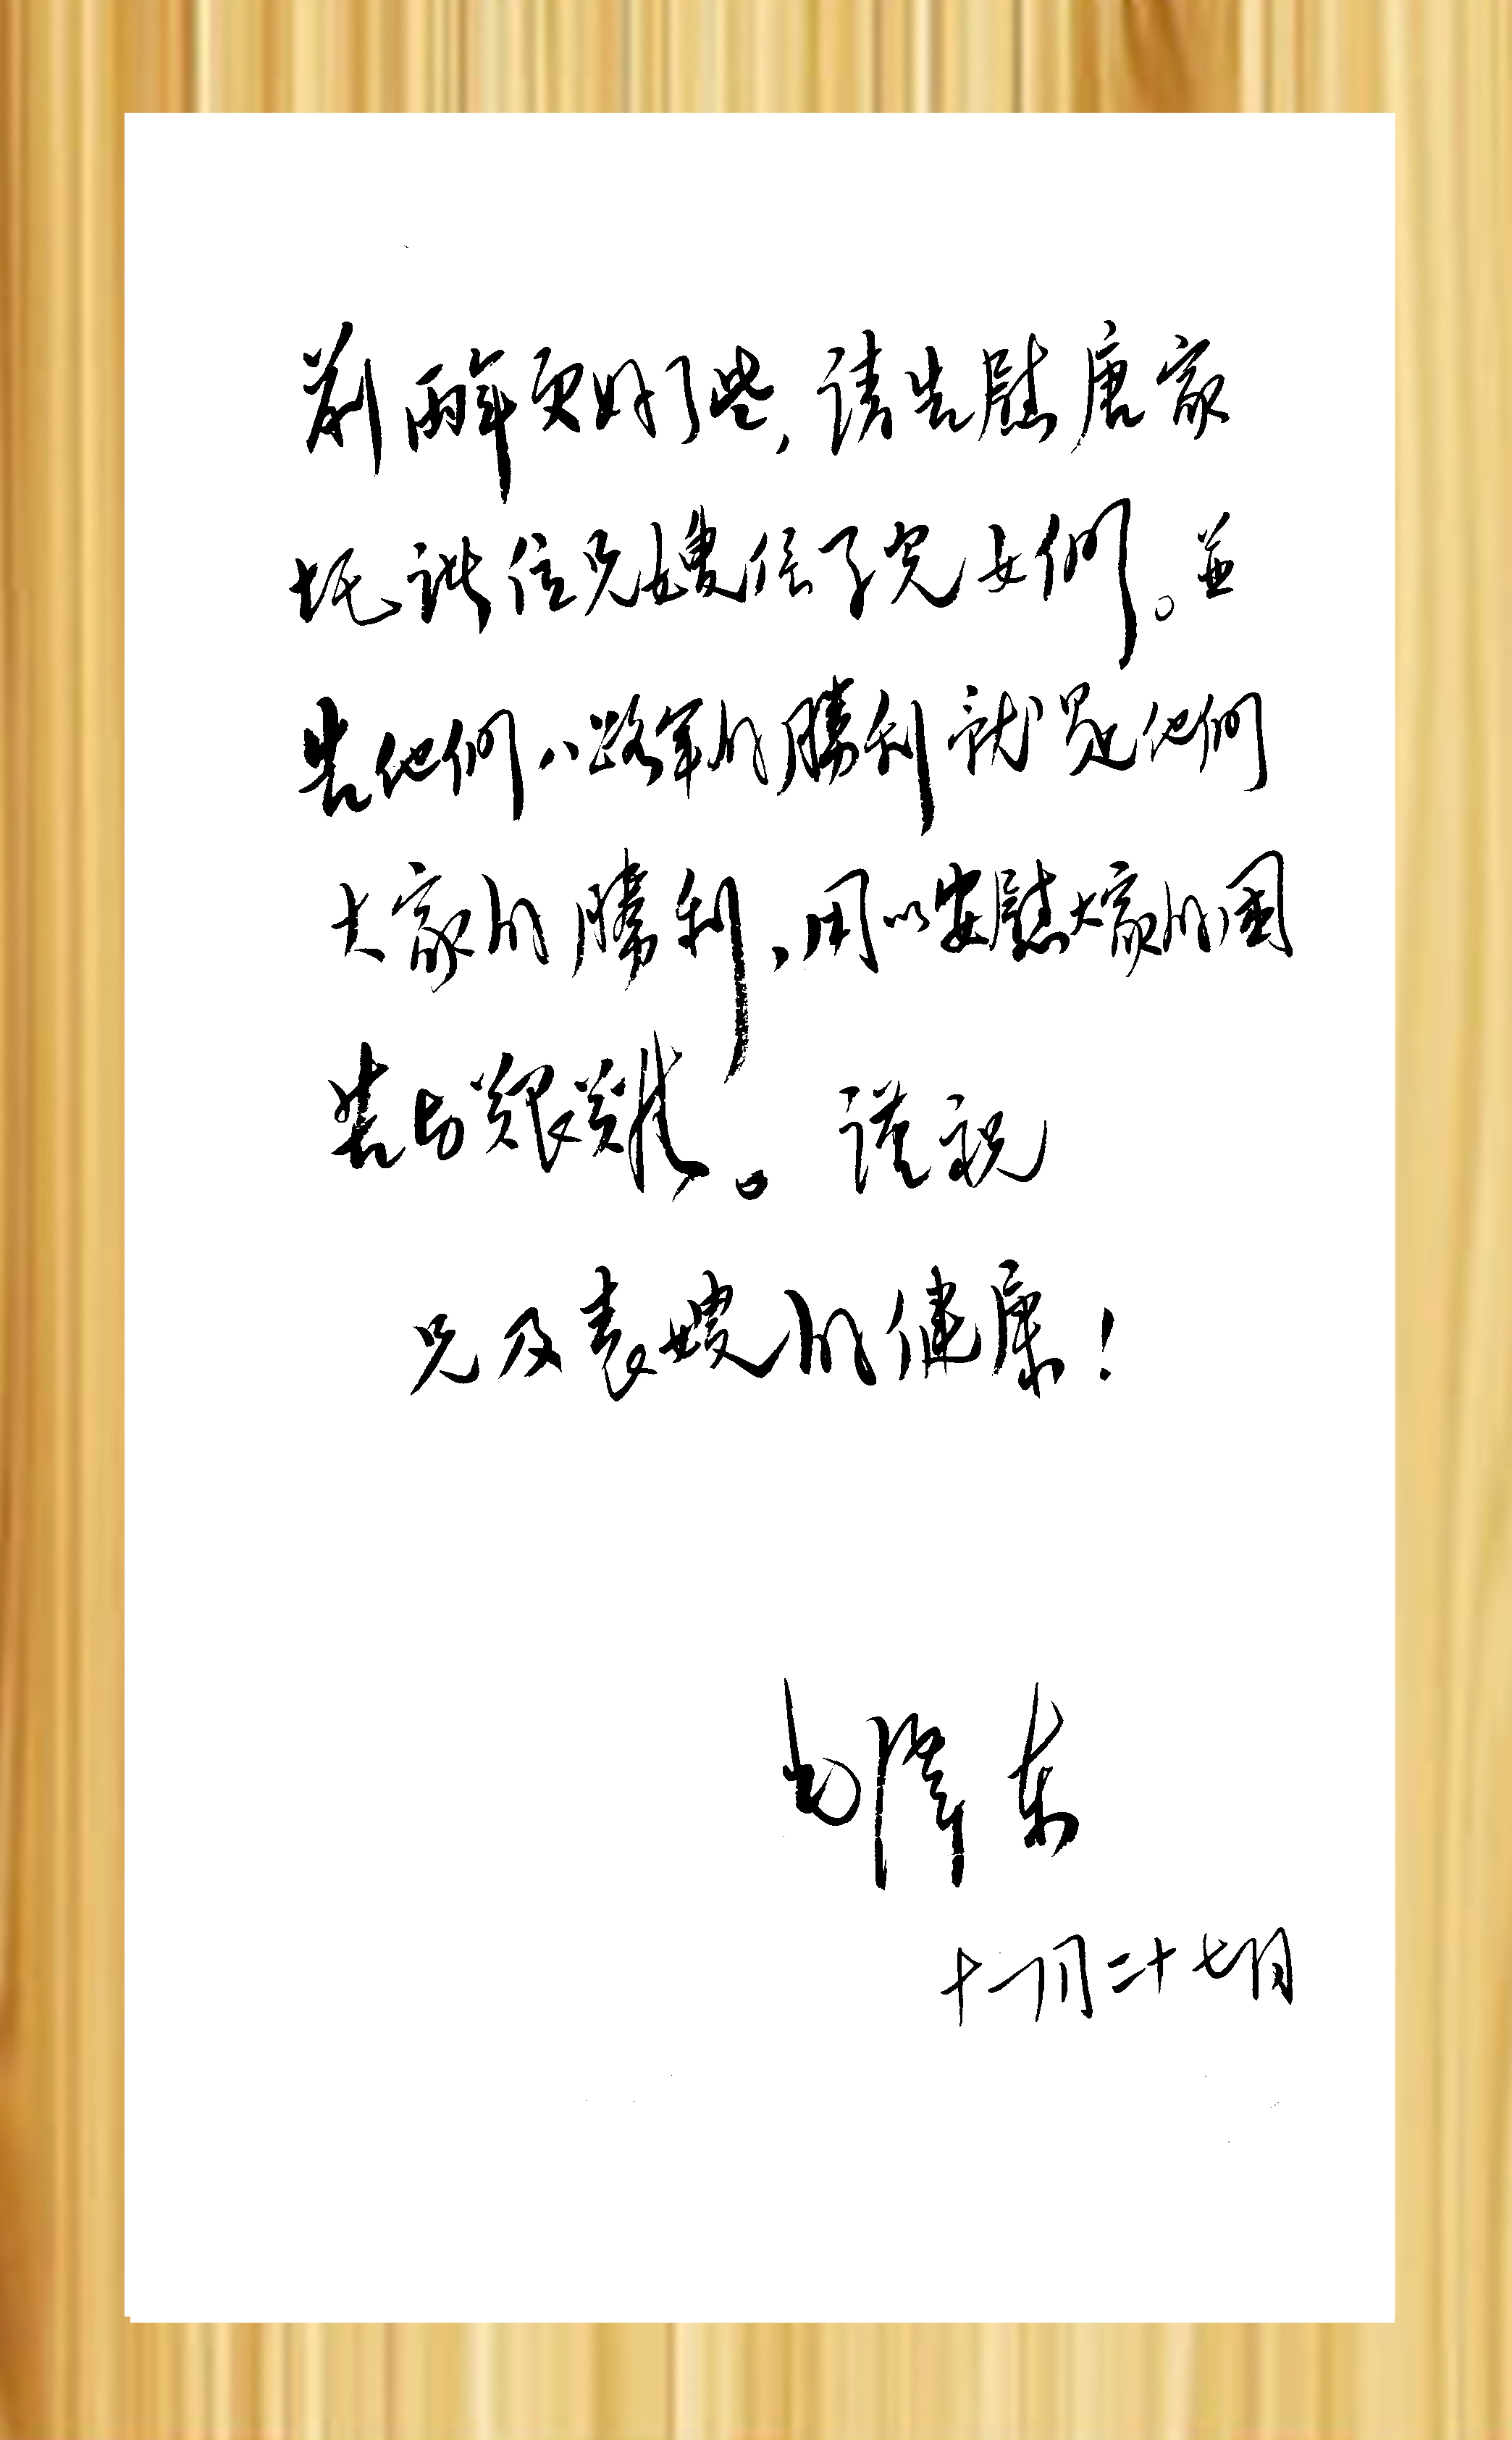 前兩年更好了些,请告慰唐家
圫諸位兄嫂侄子兒女們。並
告他們八路軍的勝利就是他們
大家的勝利,用以安慰大家的困
苦与艱難。谨祝
兄及表嫂的健康!
毛澤东
十一月二十七日